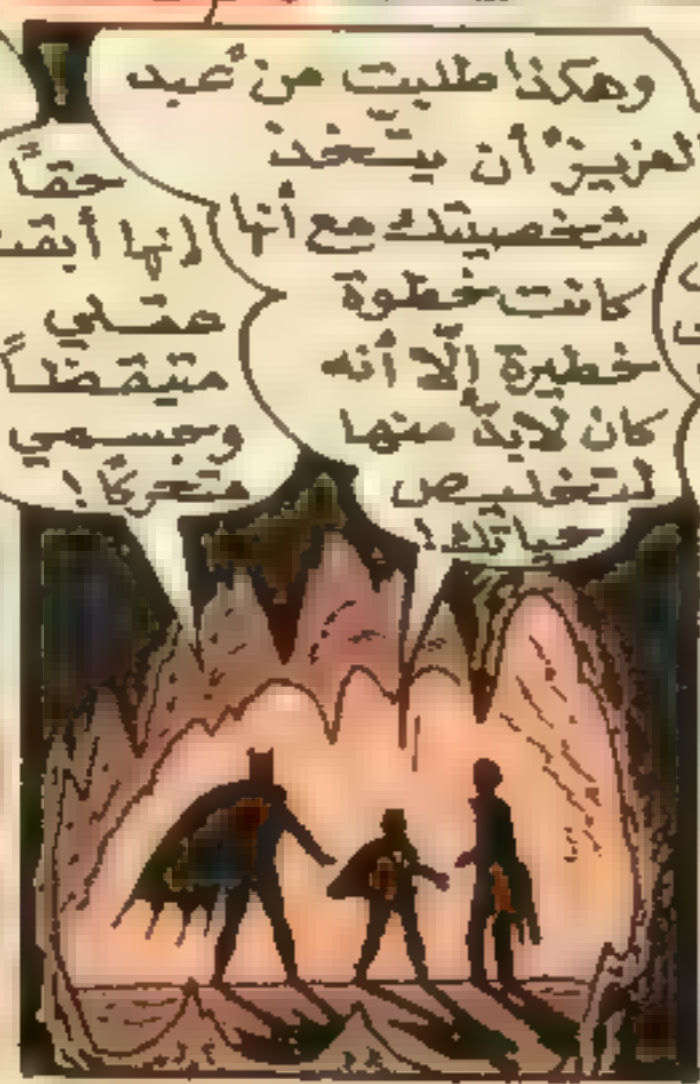 وهكذا طلبت من عبد
العزيز أن يتّخذ
شخصيتك مع أنها
كانت خطوة
خطيرة إلّا أنه
كان لابدّ منها
لتخليص
حياتك!
حقاً
إنها أبقت
عقلي
متيقظاً
وجسمي
متحركاً!